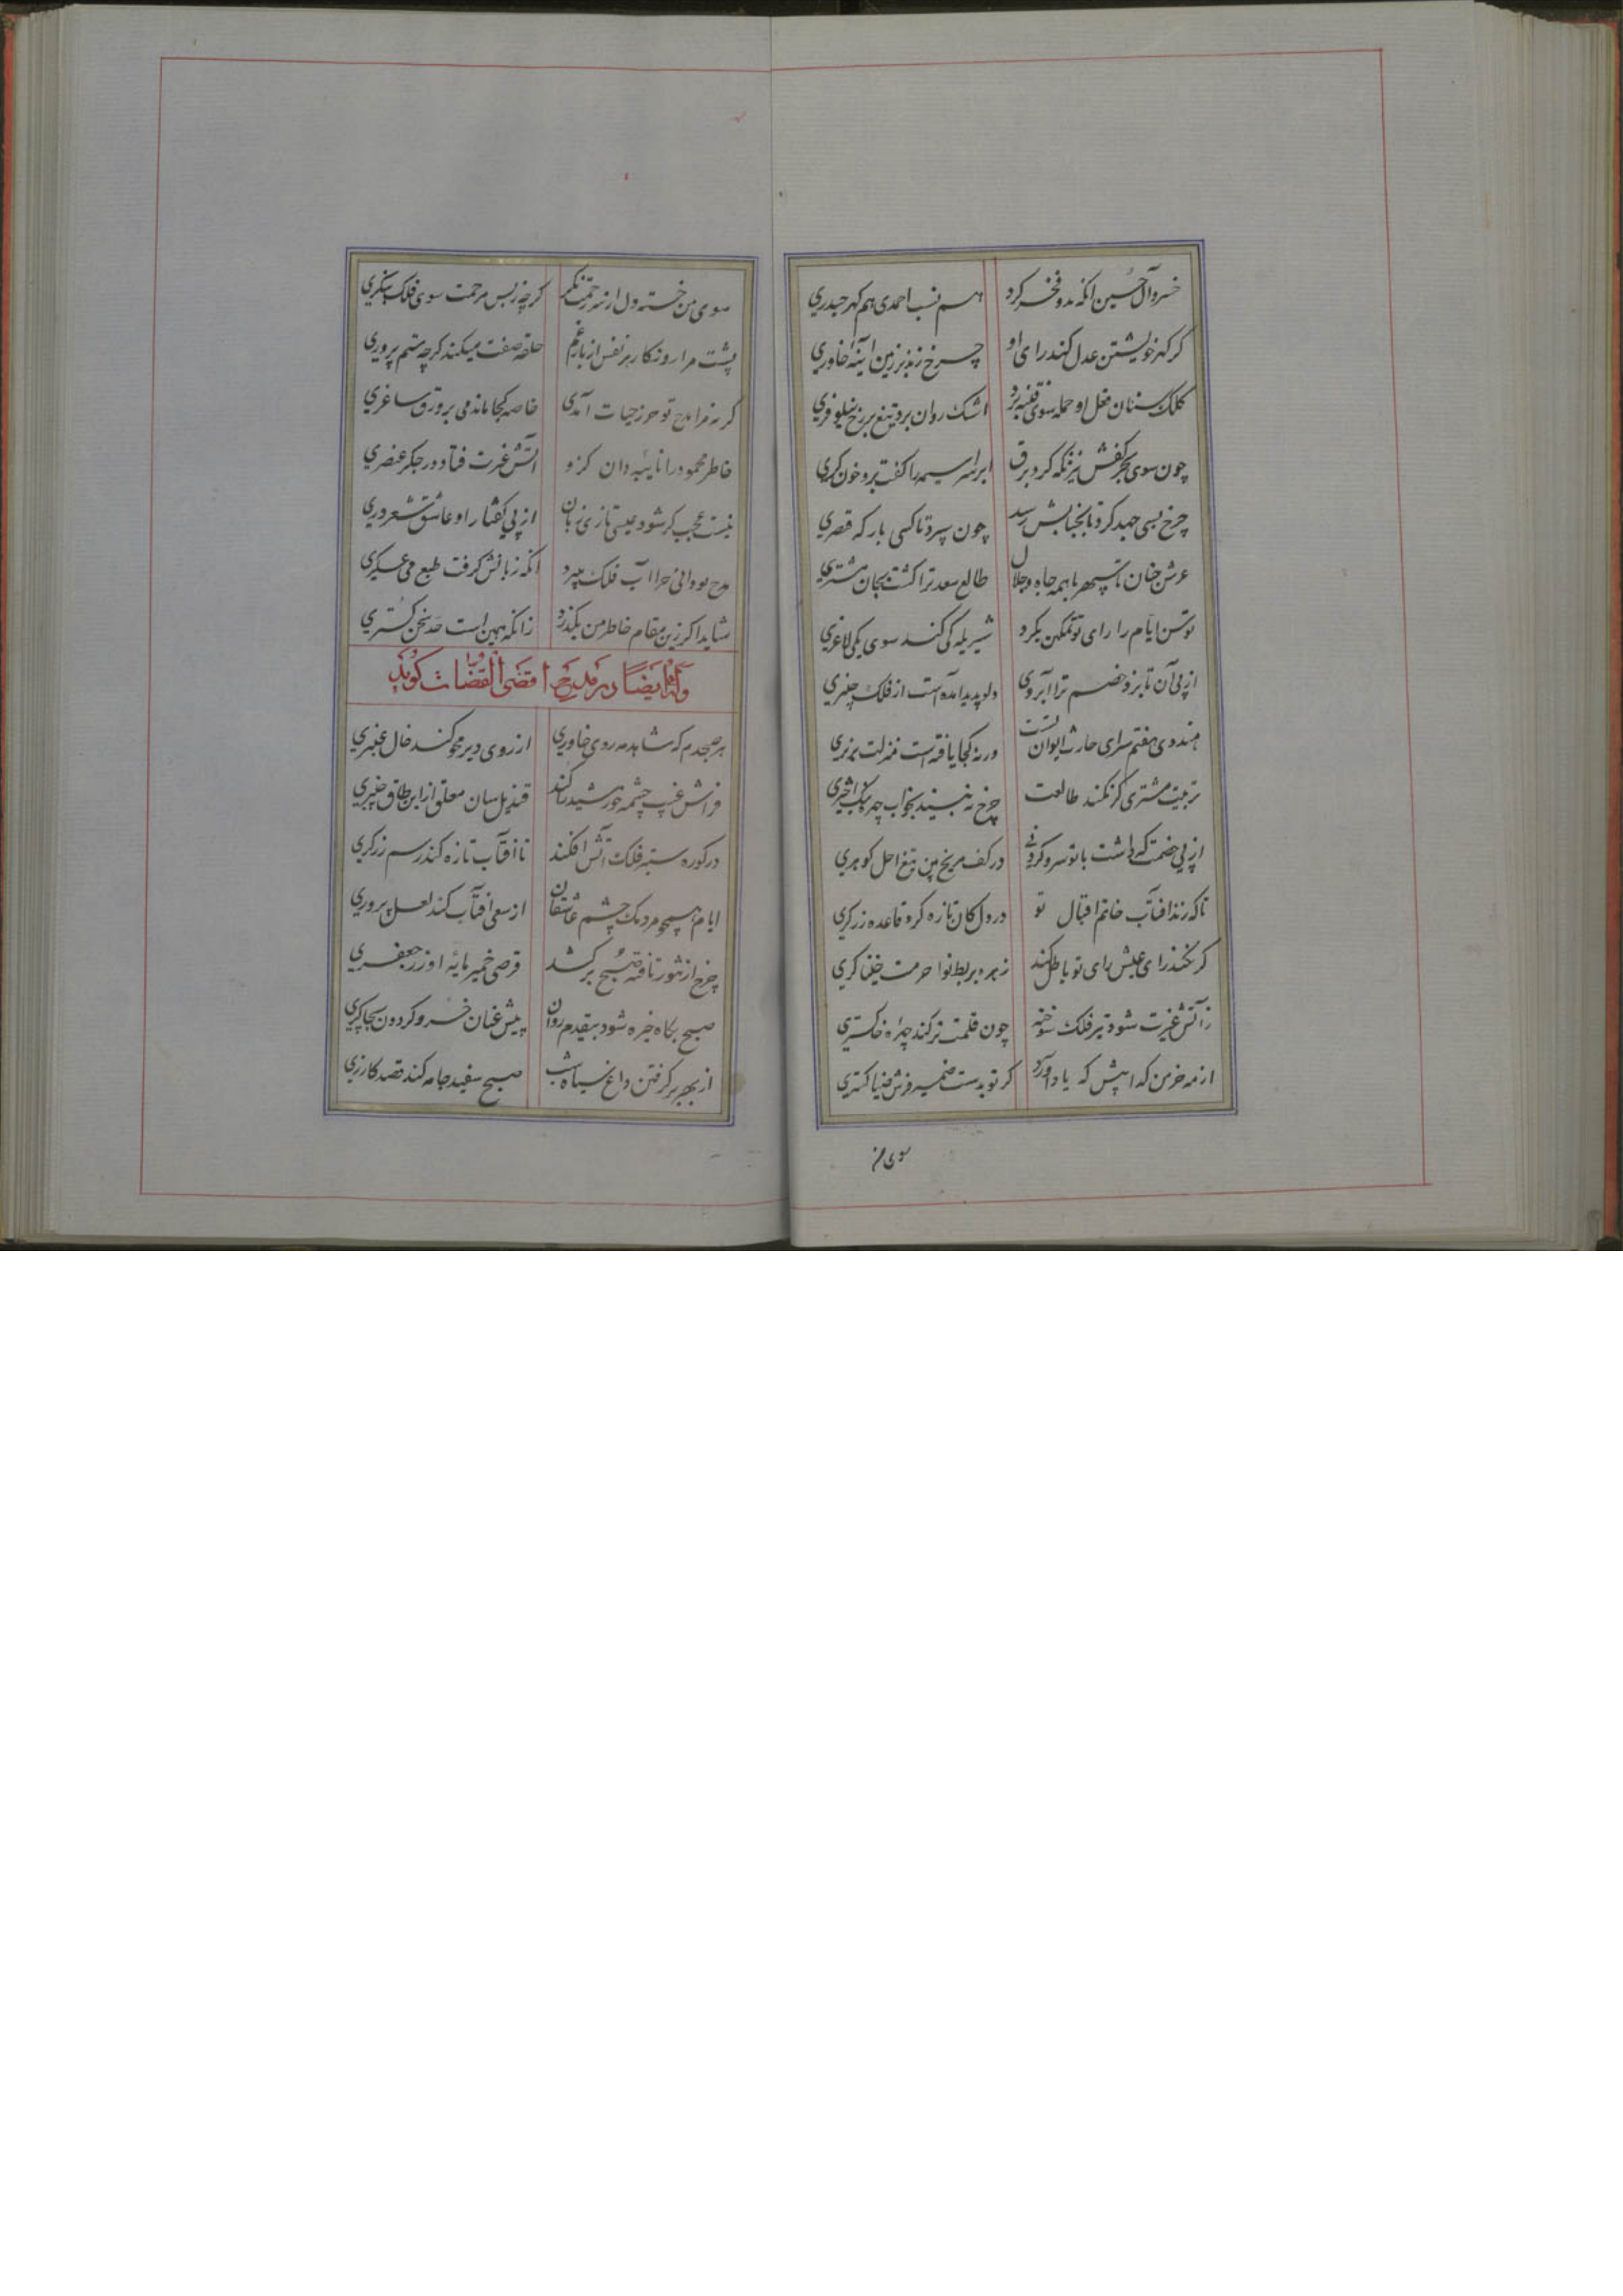 خسرو آل حسین انکه بدو فخر کرد هم نسب احمدی هم کهر حیدری
کر کهر خویشتن عدل کند رای او چرخ زند بر زمین آینهٔ خاوری
کلک سنان فعل او حمله سوی فتنه برد اشک روان برد تیغ بر رخ نیلوفری
چون سوی بحر کفش تیز نکه کرد برق ابر سیه را کفت برو خون کری
چرخ بسی جهد کرد تا بجنابش رسید چون سپرد ناکسی بارکه قصری
عرش جنان سپهر با همه جاه و جلال طالع سعد ترا کشت بجان مشتری
توسن ایام را رای تو تمکین نکرد شیر یله کی کند سوی یکی لاغری
از پی آن تا برد خصم ترا آبروی دلو پدید آمده است از فلک چنبری
هندوی هفتم سرای حارث ایوان تست ورنه کجا یافته است منزلت برتری
تربیت مشتری کر نکند طالعت چرخ نه بیند بخواب چهره نیک اختری
از پی خصمت که داشت با تو سر و کردنی در کف مریخ بین تیغ اجل کوهری
تا که زند آفتاب خاتم اقبال تو در دل کان تازه کرد قاعده زرکری
کر نکند رای عیش رای تو باطل کند زهره بربط نوا حرمت خنیاکری
ز آتش غیرت شود تیر فلک سوخته چون قلمت تر کند چهره خاکستری
از مه خرمن کدا پیش که یاد آورد کر تو بدست ضمیر فرش ضیا کستری
سوی من
سوی من خسته دل از سر رحمت نکر کرچه ز بس مرحمت سوی فلک ننکری
پشت مرا روزکار هر نفس از بار غم حلقه صفت میکند کرچه ستم پروری
کر نه مرا مدح تو حرز حیات آمدی خاصه کجا ماندمی بر ورق ساغری
خاطر محمود را نایبه دان کزو آتش غیرت فتاد در جکر عنصری
نیست عجب کر شود عیسی تازی زبان از پی کفتار او عاشق شعر دری
مدح تو دانی چرا آب فلک میبرد آنکه زبانش کرفت طبع می عسکری
شاید اکر زین مقام خاطر من بکذرد زانکه همین است حد سخن کستری
وله ایضا در مدیح اقضی القضات کوید
هر صبحدم که شاهد مه روی خاوری از روی دیر محو کند خال عنبری
فراش غرب چشمه خورشید را کند قندیل سان معلق از این طاق چنبری
در کوره ستیه فلک آتش افکند تا آفتاب تازه کند رسم زرکری
ایام همچو مردمک چشم عاشقان از سعی آفتاب کند لعل پروری
چرخ از تنور تافته صبح برکشد قرصی خمیر مایه او زر جعفری
صبح بکاه خیره شود بیقدم روان پیش عنان خسرو کردون بچاکری
از بهر برکرفتن داغ سیاه شب صبح سفید جامه کند قصد کازری